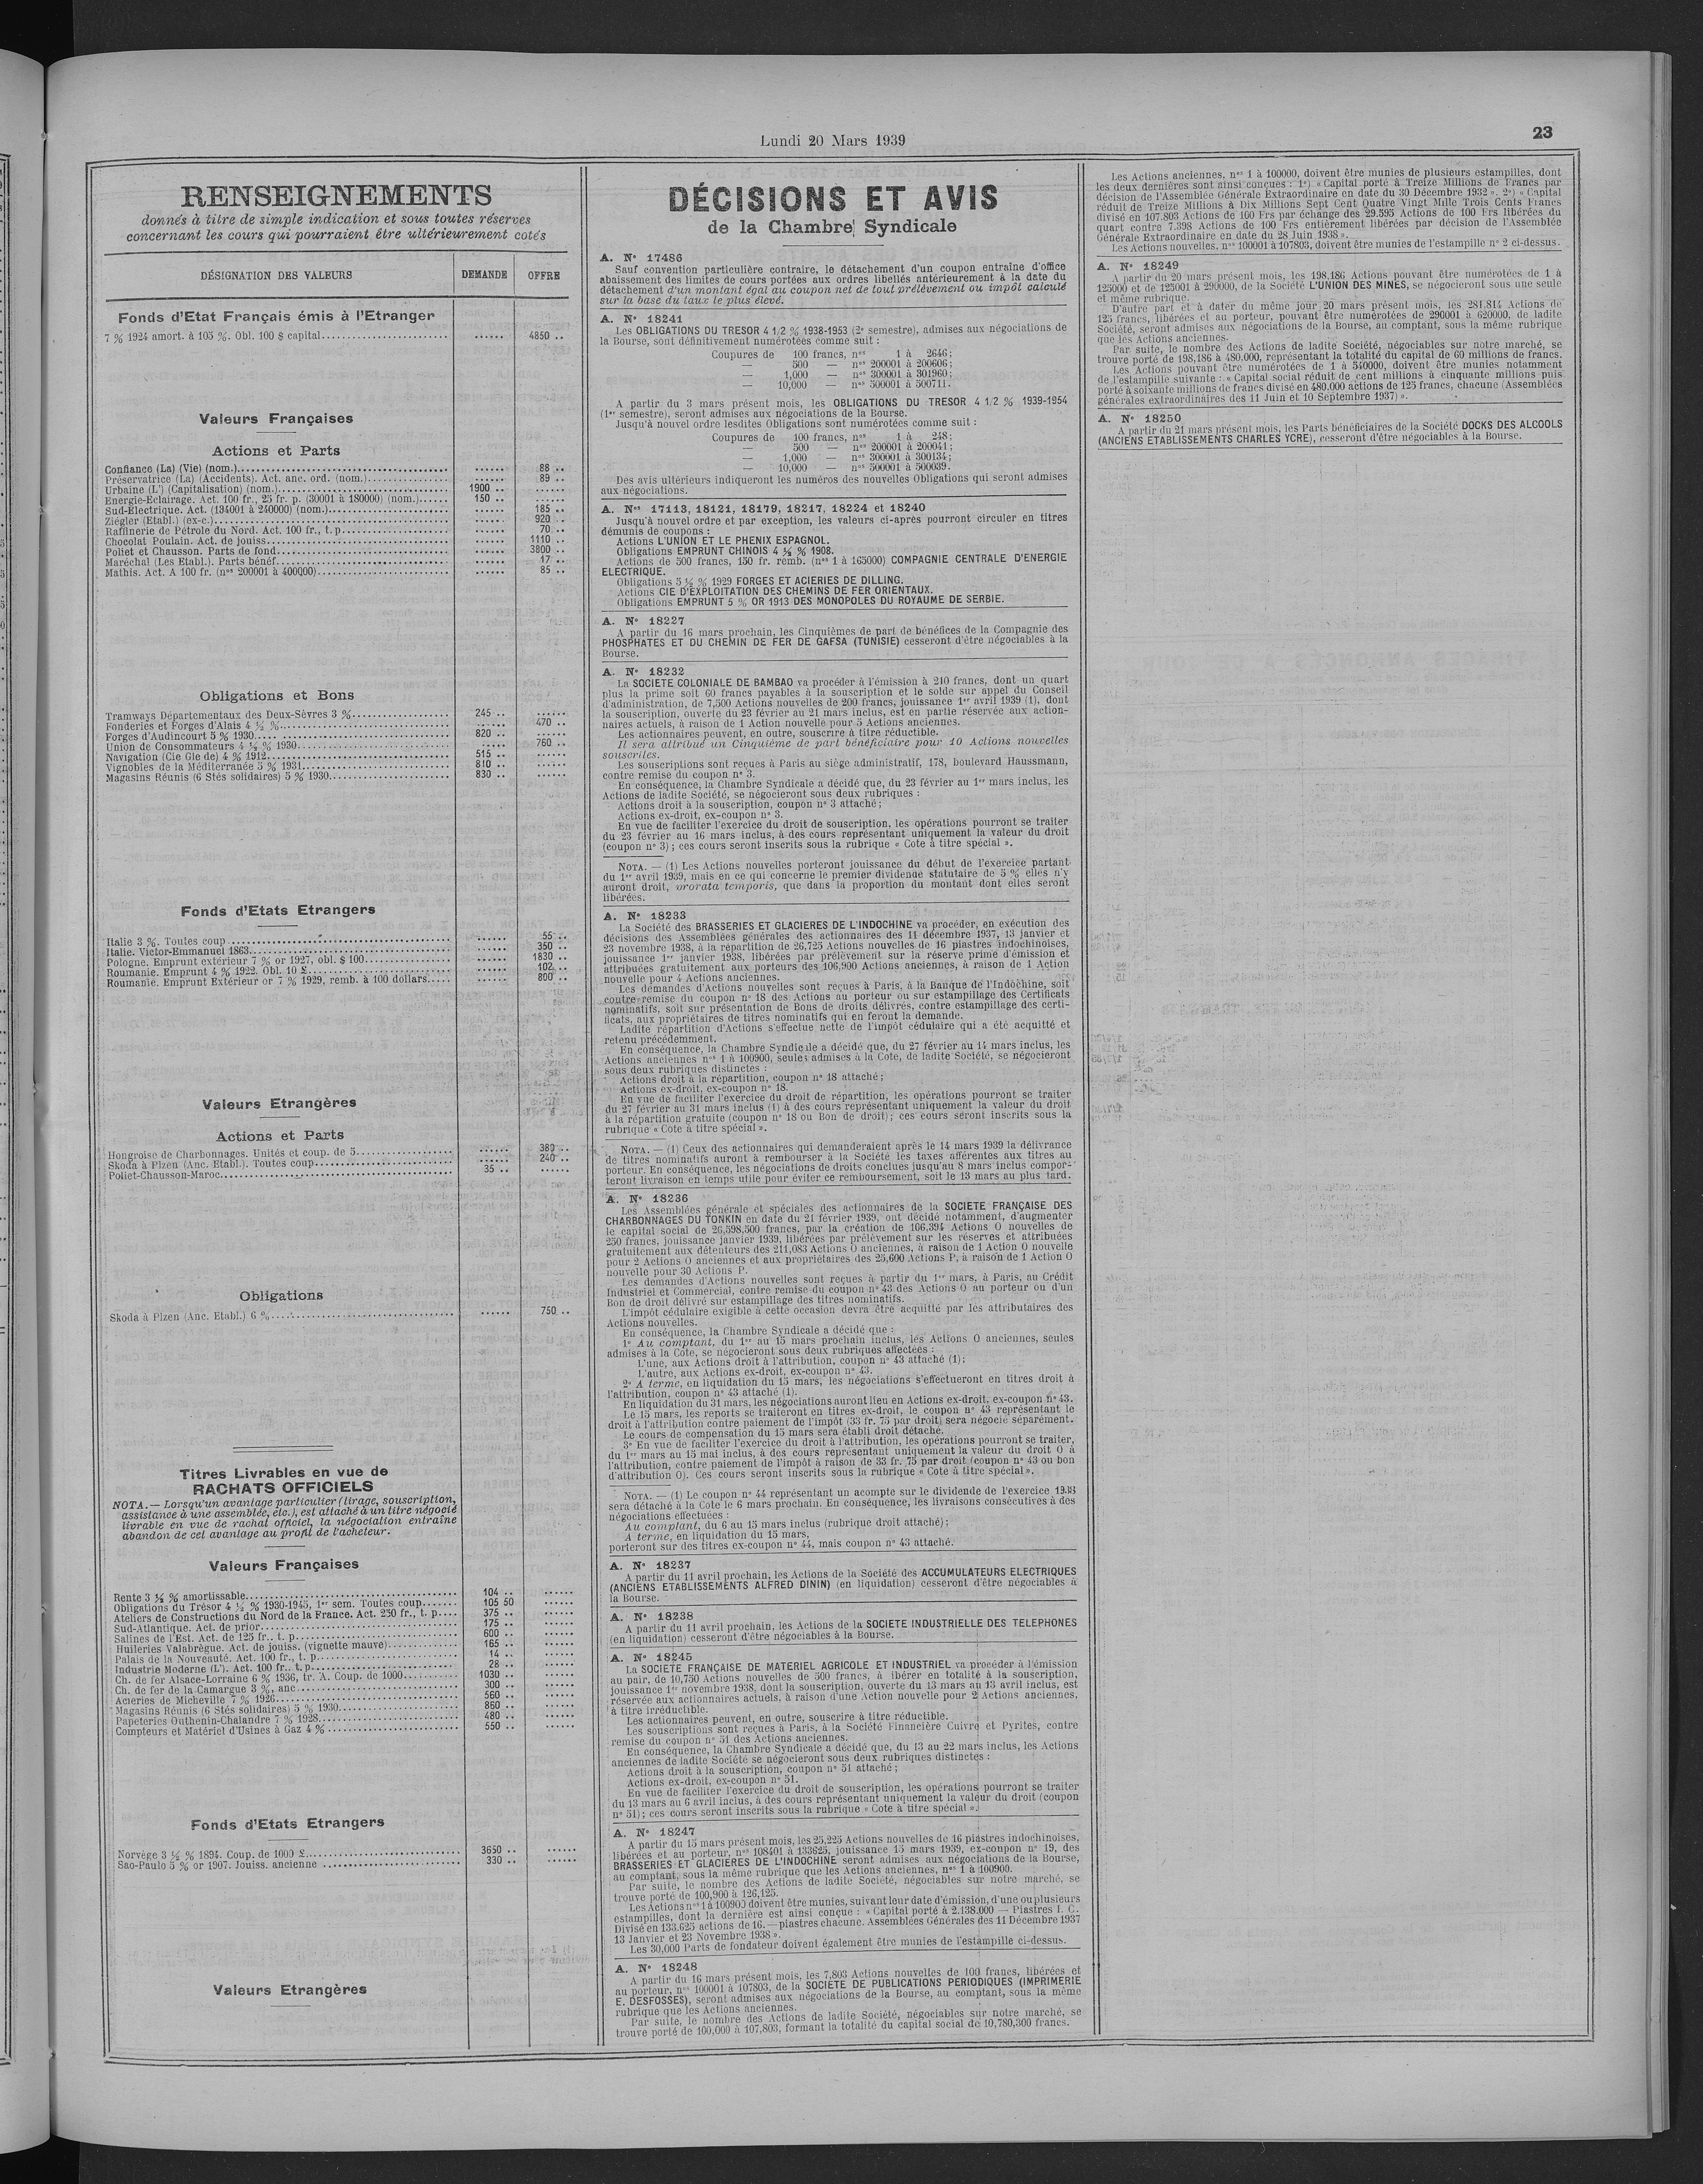 Lundi 20 Mars 1939
23
RENSEIGNEMENTS
donnés à titre de simple indication et sous toutes réserves
concernant les cours qui pourraient être ultérieurement cotés
DÉSIGNATION DES VALEURS DEMANDE OFFRE
Fonds d'Etat Français émis à l'Etranger
7 % 1924 amort. à 105 %. Obl. 100 $ capital ...... 4850 ..
Valeurs Françaises
Actions et Parts
Confiance (La) (Vie) (nom.) ...... 88 ..
Préservatrice (La) (Accidents). Act. anc. ord. (nom.) ...... 89 ..
Urbaine (L') (Capitalisation) (nom.) 1900 .. ......
Energie-Eclairage. Act. 100 fr., 25 fr. p. (30001 à 180000) (nom.) 150 .. ......
Sud-Electrique. Act. (134001 à 240000) (nom.) ...... 185 ..
Ziégler (Etabl.) (ex-c.) ...... 920 ..
Raffinerie de Pétrole du Nord. Act. 100 fr., t. p. ...... 70 ..
Chocolat Poulain. Act. de jouiss. ...... 1110 ..
Poliet et Chausson. Parts de fond. ...... 3800 ..
Maréchal (Les Etabl.). Parts bénéf. ...... 17 ..
Mathis. Act. A 100 fr. (nos 200001 à 400000) ...... 85 ..
Obligations et Bons
Tramways Départementaux des Deux-Sèvres 3 % 245 .. ......
Fonderies et Forges d'Alais 4 ½ % ...... 470 ..
Forges d'Audincourt 5 % 1930 820 .. ......
Union de Consommateurs 4 ½ % 1930 ...... 760 ..
Navigation (Cie Gle de) 4 % 1912 515 .. ......
Vignobles de la Méditerranée 5 % 1931 810 .. ......
Magasins Réunis (6 Stés solidaires) 5 % 1930 830 .. ......
Fonds d'Etats Etrangers
Italie 3 %. Toutes coup. ...... 55 ..
Italie. Victor-Emmanuel 1863 ...... 350 ..
Pologne. Emprunt extérieur 7 % or 1927, obl. $ 100 ...... 1830 ..
Roumanie. Emprunt 4 % 1922. Obl. 10 £ ...... 102 ..
Roumanie. Emprunt Extérieur or 7 % 1929, remb. à 100 dollars ...... 800 ..
Valeurs Etrangères
Actions et Parts
Hongroise de Charbonnages. Unités et coup. de 5 ...... 380 ..
Skoda à Plzen (Anc. Etabl.). Toutes coup. ...... 240 ..
Poliet-Chausson-Maroc 35 .. ......
Obligations
Skoda à Plzen (Anc. Etabl.) 6 % ...... 750 ..
Titres Livrables en vue de
RACHATS OFFICIELS
NOTA. — Lorsqu'un avantage particulier (tirage, souscription,
assistance à une assemblée, etc.), est attaché à un titre négocié
livrable en vue de rachat officiel, la négociation entraîne
abandon de cet avantage au profit de l'acheteur.
Valeurs Françaises
Rente 3 ½ % amortissable 104 .. ......
Obligations du Trésor 4 ½ % 1930-1945, 1er sem. Toutes coup. 105 50 ......
Ateliers de Constructions du Nord de la France. Act. 250 fr., t. p. 375 .. ......
Sud-Atlantique. Act. de prior. 175 .. ......
Salines de l'Est. Act. de 125 fr., t. p. 600 .. ......
Huileries Valabrègue. Act. de jouiss. (vignette mauve) 165 .. ......
Palais de la Nouveauté. Act. 100 fr., t. p. 14 .. ......
Industrie Moderne (L'). Act. 100 fr., t. p. 28 .. ......
Ch. de fer Alsace-Lorraine 6 % 1936, tr. A. Coup. de 1000 1030 .. ......
Ch. de fer de la Camargue 3 %, anc. 300 .. ......
Aciéries de Micheville 7 % 1926 560 .. ......
Magasins Réunis (6 Stés solidaires) 5 % 1930 860 .. ......
Papeteries Outhenin-Chalandre 7 % 1928 480 .. ......
Compteurs et Matériel d'Usines à Gaz 4 % 550 .. ......
Fonds d'Etats Etrangers
Norvège 3 ½ % 1894. Coup. de 1000 £ 3650 .. ......
Sao-Paulo 5 % or 1907. Jouiss. ancienne 330 .. ......
Valeurs Etrangères
DÉCISIONS ET AVIS
de la Chambre Syndicale
A. N° 17486
Sauf convention particulière contraire, le détachement d'un coupon entraîne d'office
abaissement des limites de cours portées aux ordres libellés antérieurement à la date du
détachement d'un montant égal au coupon net de tout prélèvement ou impôt calculé
sur la base du taux le plus élevé.
A. N° 18241
Les OBLIGATIONS DU TRESOR 4 1/2 % 1938-1953 (2e semestre), admises aux négociations de
la Bourse, sont définitivement numérotées comme suit :
Coupures de 100 francs, nos 1 à 2646;
— 500 — nos 200001 à 200606;
— 1,000 — nos 300001 à 301960;
— 10,000 — nos 500001 à 500711.
A partir du 3 mars présent mois, les OBLIGATIONS DU TRESOR 4 1/2 % 1939-1954
(1er semestre), seront admises aux négociations de la Bourse.
Jusqu'à nouvel ordre lesdites Obligations sont numérotées comme suit :
Coupures de 100 francs, nos 1 à 248;
— 500 — nos 200001 à 200041;
— 1,000 — nos 300001 à 300134;
— 10,000 — nos 500001 à 500039.
Des avis ultérieurs indiqueront les numéros des nouvelles Obligations qui seront admises
aux négociations.
A. Nos 17113, 18121, 18179, 18217, 18224 et 18240
Jusqu'à nouvel ordre et par exception, les valeurs ci-après pourront circuler en titres
démunis de coupons :
Actions L'UNION ET LE PHENIX ESPAGNOL.
Obligations EMPRUNT CHINOIS 4 ½ % 1908.
Actions de 500 francs, 150 fr. remb. (nos 1 à 165000) COMPAGNIE CENTRALE D'ENERGIE
ELECTRIQUE.
Obligations 5 ½ % 1929 FORGES ET ACIERIES DE DILLING.
Actions CIE D'EXPLOITATION DES CHEMINS DE FER ORIENTAUX.
Obligations EMPRUNT 5 % OR 1913 DES MONOPOLES DU ROYAUME DE SERBIE.
A. N° 18227
A partir du 16 mars prochain, les Cinquièmes de part de bénéfices de la Compagnie des
PHOSPHATES ET DU CHEMIN DE FER DE GAFSA (TUNISIE) cesseront d'être négociables à la
Bourse.
A. N° 18232
La SOCIETE COLONIALE DE BAMBAO va procéder à l'émission à 210 francs, dont un quart
plus la prime soit 60 francs payables à la souscription et le solde sur appel du Conseil
d'administration, de 7,500 Actions nouvelles de 200 francs, jouissance 1er avril 1939 (1), dont
la souscription, ouverte du 23 février au 21 mars inclus, est en partie réservée aux action-
naires actuels, à raison de 1 Action nouvelle pour 5 Actions anciennes.
Les actionnaires peuvent, en outre, souscrire à titre réductible.
Il sera attribué un Cinquième de part bénéficiaire pour 10 Actions nouvelles
souscrites.
Les souscriptions sont reçues à Paris au siège administratif, 178, boulevard Haussmann,
contre remise du coupon n° 3.
En conséquence, la Chambre Syndicale a décidé que, du 23 février au 1er mars inclus, les
Actions de ladite Société, se négocieront sous deux rubriques :
Actions droit à la souscription, coupon n° 3 attaché;
Actions ex-droit, ex-coupon n° 3.
En vue de faciliter l'exercice du droit de souscription, les opérations pourront se traiter
du 23 février au 16 mars inclus, à des cours représentant uniquement la valeur du droit
(coupon n° 3); ces cours seront inscrits sous la rubrique « Cote à titre spécial ».
NOTA. — (1) Les Actions nouvelles porteront jouissance du début de l'exercice partant
du 1er avril 1939, mais en ce qui concerne le premier dividende statutaire de 5 % elles n'y
auront droit, prorata temporis, que dans la proportion du montant dont elles seront
libérées.
A. N° 18233
La Société des BRASSERIES ET GLACIERES DE L'INDOCHINE va procéder, en exécution des
décisions des Assemblées générales des actionnaires des 11 décembre 1937, 13 janvier et
23 novembre 1938, à la répartition de 26,725 Actions nouvelles de 16 piastres indochinoises,
jouissance 1er janvier 1938, libérées par prélèvement sur la réserve prime d'émission et
attribuées gratuitement aux porteurs des 106,900 Actions anciennes, à raison de 1 Action
nouvelle pour 4 Actions anciennes.
Les demandes d'Actions nouvelles sont reçues à Paris, à la Banque de l'Indochine, soit
contre remise du coupon n° 18 des Actions au porteur ou sur estampillage des Certificats
nominatifs, soit sur présentation de Bons de droits délivrés, contre estampillage des certi-
ficats, aux propriétaires de titres nominatifs qui en feront la demande.
Ladite répartition d'Actions s'effectue nette de l'impôt cédulaire qui a été acquitté et
retenu précédemment.
En conséquence, la Chambre Syndicale a décidé que, du 27 février au 14 mars inclus, les
Actions anciennes nos 1 à 100900, seules admises à la Cote, de ladite Société, se négocieront
sous deux rubriques distinctes :
Actions droit à la répartition, coupon n° 18 attaché;
Actions ex-droit, ex-coupon n° 18.
En vue de faciliter l'exercice du droit de répartition, les opérations pourront se traiter
du 27 février au 31 mars inclus (1) à des cours représentant uniquement la valeur du droit
à la répartition gratuite (coupon n° 18 ou Bon de droit); ces cours seront inscrits sous la
rubrique « Cote à titre spécial ».
NOTA. — (1) Ceux des actionnaires qui demanderaient après le 14 mars 1939 la délivrance
de titres nominatifs auront à rembourser à la Société les taxes afférentes aux titres au
porteur. En conséquence, les négociations de droits conclues jusqu'au 8 mars inclus compor-
teront livraison en temps utile pour éviter ce remboursement, soit le 13 mars au plus tard.
A. N° 18236
Les Assemblées générale et spéciales des actionnaires de la SOCIETE FRANÇAISE DES
CHARBONNAGES DU TONKIN en date du 21 février 1939, ont décidé notamment, d'augmenter
le capital social de 26,598,500 francs, par la création de 106,394 Actions O nouvelles de
250 francs, jouissance janvier 1939, libérées par prélèvement sur les réserves et attribuées
gratuitement aux détenteurs des 211,083 Actions O anciennes, à raison de 1 Action O nouvelle
pour 2 Actions O anciennes et aux propriétaires des 25,600 Actions P, à raison de 1 Action O
nouvelle pour 30 Actions P.
Les demandes d'Actions nouvelles sont reçues à partir du 1er mars, à Paris, au Crédit
Industriel et Commercial, contre remise du coupon n° 43 des Actions O au porteur ou d'un
Bon de droit délivré sur estampillage des titres nominatifs.
L'impôt cédulaire exigible à cette occasion devra être acquitté par les attributaires des
Actions nouvelles.
En conséquence, la Chambre Syndicale a décidé que :
1° Au comptant, du 1er au 15 mars prochain inclus, les Actions O anciennes, seules
admises à la Cote, se négocieront sous deux rubriques affectées :
L'une, aux Actions droit à l'attribution, coupon n° 43 attaché (1);
L'autre, aux Actions ex-droit, ex-coupon n° 43.
2° A terme, en liquidation du 15 mars, les négociations s'effectueront en titres droit à
l'attribution, coupon n° 43 attaché (1).
En liquidation du 31 mars, les négociations auront lieu en Actions ex-droit, ex-coupon n° 43.
Le 15 mars, les reports se traiteront en titres ex-droit, le coupon n° 43 représentant le
droit à l'attribution contre paiement de l'impôt (33 fr. 75 par droit) sera négocié séparément.
Le cours de compensation du 15 mars sera établi droit détaché.
3° En vue de faciliter l'exercice du droit à l'attribution, les opérations pourront se traiter,
du 1er mars au 15 mai inclus, à des cours représentant uniquement la valeur du droit O à
l'attribution, contre paiement de l'impôt à raison de 33 fr. 75 par droit (coupon n° 43 ou bon
d'attribution O). Ces cours seront inscrits sous la rubrique « Cote à titre spécial ».
NOTA. — (1) Le coupon n° 44 représentant un acompte sur le dividende de l'exercice 1938
sera détaché à la Cote le 6 mars prochain. En conséquence, les livraisons consécutives à des
négociations effectuées :
Au comptant, du 6 au 15 mars inclus (rubrique droit attaché);
A terme, en liquidation du 15 mars,
porteront sur des titres ex-coupon n° 44, mais coupon n° 43 attaché.
A. N° 18237
A partir du 11 avril prochain, les Actions de la Société des ACCUMULATEURS ELECTRIQUES
(ANCIENS ETABLISSEMENTS ALFRED DININ) (en liquidation) cesseront d'être négociables à
la Bourse.
A. N° 18238
A partir du 11 avril prochain, les Actions de la SOCIETE INDUSTRIELLE DES TELEPHONES
(en liquidation) cesseront d'être négociables à la Bourse.
A. N° 18245
La SOCIETE FRANÇAISE DE MATERIEL AGRICOLE ET INDUSTRIEL va procéder à l'émission
au pair, de 10,750 Actions nouvelles de 500 francs, à libérer en totalité à la souscription,
jouissance 1er novembre 1938, dont la souscription, ouverte du 13 mars au 13 avril inclus, est
réservée aux actionnaires actuels, à raison d'une Action nouvelle pour 2 Actions anciennes,
à titre irréductible.
Les actionnaires peuvent, en outre, souscrire à titre réductible.
Les souscriptions sont reçues à Paris, à la Société Financière Cuivre et Pyrites, contre
remise du coupon n° 51 des Actions anciennes.
En conséquence, la Chambre Syndicale a décidé que, du 13 au 22 mars inclus, les Actions
anciennes de ladite Société se négocieront sous deux rubriques distinctes :
Actions droit à la souscription, coupon n° 51 attaché;
Actions ex-droit, ex-coupon n° 51.
En vue de faciliter l'exercice du droit de souscription, les opérations pourront se traiter
du 13 mars au 6 avril inclus, à des cours représentant uniquement la valeur du droit (coupon
n° 51); ces cours seront inscrits sous la rubrique « Cote à titre spécial ».
A. N° 18247
A partir du 15 mars présent mois, les 25,225 Actions nouvelles de 16 piastres indochinoises,
libérées et au porteur, nos 108401 à 133625, jouissance 15 mars 1939, ex-coupon n° 19, des
BRASSERIES ET GLACIERES DE L'INDOCHINE seront admises aux négociations de la Bourse,
au comptant, sous la même rubrique que les Actions anciennes, nos 1 à 100900.
Par suite, le nombre des Actions de ladite Société, négociables sur notre marché, se
trouve porté de 100,900 à 126,125.
Les Actions nos 1 à 100900 doivent être munies, suivant leur date d'émission, d'une ou plusieurs
estampilles, dont la dernière est ainsi conçue : « Capital porté à 2.138.000 — Piastres I. C.
Divisé en 133.625 actions de 16. — piastres chacune. Assemblées Générales des 11 Décembre 1937
13 Janvier et 23 Novembre 1938 ».
Les 30,000 Parts de fondateur doivent également être munies de l'estampille ci-dessus.
A. N° 18248
A partir du 16 mars présent mois, les 7,803 Actions nouvelles de 100 francs, libérées et
au porteur, nos 100001 à 107803, de la SOCIETE DE PUBLICATIONS PERIODIQUES (IMPRIMERIE
E. DESFOSSES), seront admises aux négociations de la Bourse, au comptant, sous la même
rubrique que les Actions anciennes.
Par suite, le nombre des Actions de ladite Société, négociables sur notre marché, se
trouve porté de 100,000 à 107,803, formant la totalité du capital social de 10,780,300 francs.
Les Actions anciennes, nos 1 à 100000, doivent être munies de plusieurs estampilles, dont
les deux dernières sont ainsi conçues : 1°) « Capital porté à Treize Millions de Francs par
décision de l'Assemblée Générale Extraordinaire en date du 30 Décembre 1932 ». 2°) « Capital
réduit de Treize Millions à Dix Millions Sept Cent Quatre Vingt Mille Trois Cents Francs
divisé en 107.803 Actions de 100 Frs par échange des 29.595 Actions de 100 Frs libérées du
quart contre 7.398 Actions de 100 Frs entièrement libérées par décision de l'Assemblée
Générale Extraordinaire en date du 28 Juin 1938 ».
Les Actions nouvelles, nos 100001 à 107803, doivent être munies de l'estampille n° 2 ci-dessus.
A. N° 18249
A partir du 20 mars présent mois, les 198,186 Actions pouvant être numérotées de 1 à
125000 et de 125001 à 290000, de la Société L'UNION DES MINES, se négocieront sous une seule
et même rubrique.
D'autre part et à dater du même jour 20 mars présent mois, les 281,814 Actions de
125 francs, libérées et au porteur, pouvant être numérotées de 290001 à 620000, de ladite
Société, seront admises aux négociations de la Bourse, au comptant, sous la même rubrique
que les Actions anciennes.
Par suite, le nombre des Actions de ladite Société, négociables sur notre marché, se
trouve porté de 198,186 à 480.000, représentant la totalité du capital de 60 millions de francs.
Les Actions pouvant être numérotées de 1 à 540000, doivent être munies notamment
de l'estampille suivante : « Capital social réduit de cent millions à cinquante millions puis
porté à soixante millions de francs divisé en 480.000 actions de 125 francs, chacune (Assemblées
générales extraordinaires des 11 Juin et 10 Septembre 1937) ».
A. N° 18250
A partir du 21 mars présent mois, les Parts bénéficiaires de la Société DOCKS DES ALCOOLS
(ANCIENS ETABLISSEMENTS CHARLES YCRE), cesseront d'être négociables à la Bourse.